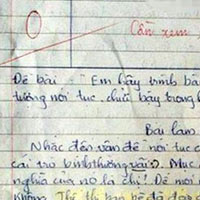 0
Cần xem
Đề bài : "Em hãy trình bà
tượng nói tục, chửi bậy trong
Bài làm
Nhắc đến vấn đề "nói tục c
cái trò bình thường vãi:). Mục
nghĩa của nó là chi? Để mới
không. Thế thì bạn bè đã